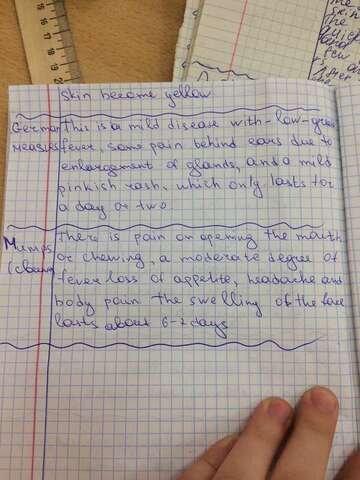 skin become yellow
German This is a mild disease with low-grade
measles fever, some pain behind ears due to
enlargement of glands, and a mild
pinkish rash, which only lasts for
a day or two.
Mumps There is pain on opening the mouth
or chewing, a moderate degree of
fever loss of appetite, headache and
body pain the swelling of the face
lasts about 6-7 days